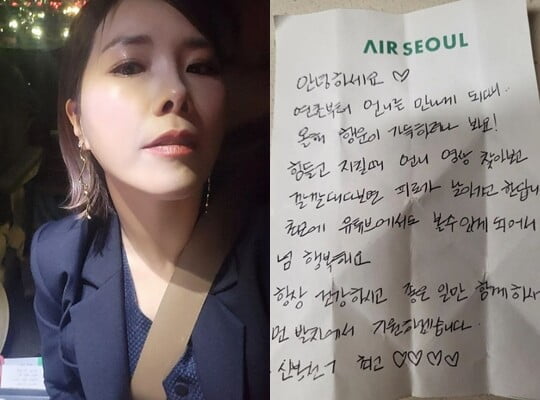 AIR SEOUL
안녕하세요 ♡
연초부터 언니를 만나게 되다니..
올해 행운이 가득하려나 봐요!
힘들고 지칠때 언니 영상 찾아보고
깔깔대다보면 피로가 날아가고 한답니
최근에 유튜브에서도 볼수 있게 되어서
넘 행복해요
항상 건강하시고 좋은 일만 함께하시
먼 발치에서 기원하겠습니다.
최고 ♡♡♡♡